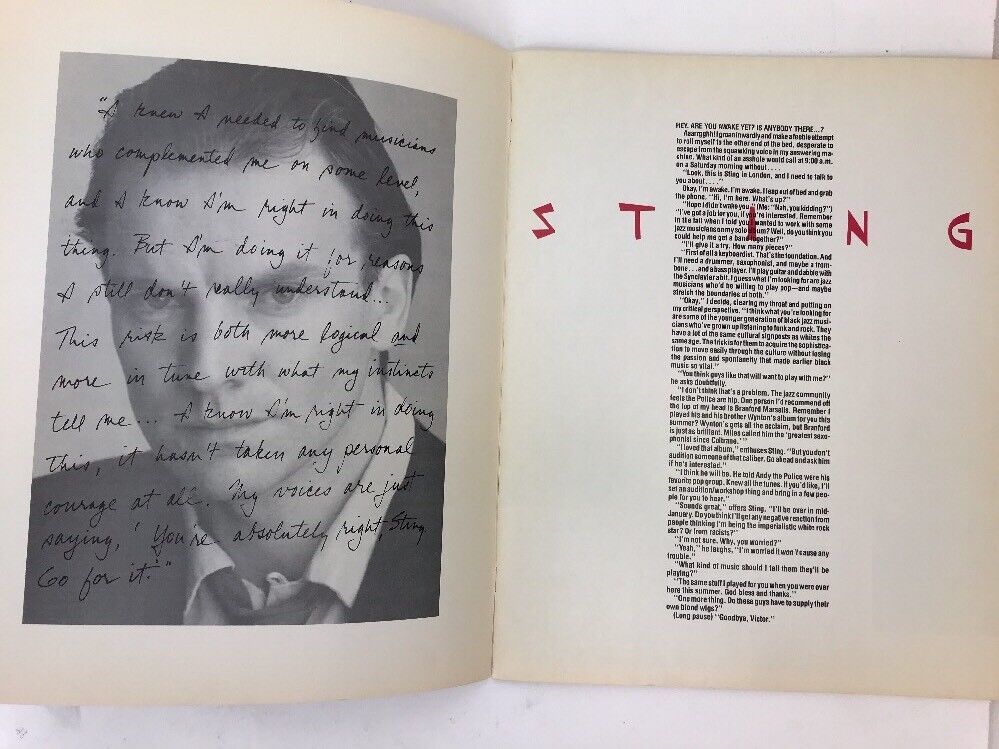 "I knew I needed to find musicians
who complemented me on some level,
and I know I'm right in doing this
thing. But I'm doing it for reasons
I still don't really understand...
This risk is both more logical and
more in tune with what my instincts
tell me... I know I'm right in doing
this, it hasn't taken any personal
courage at all. My voices are just
saying, 'You're absolutely right, Sting.
Go for it.'"
STING
HEY. ARE YOU AWAKE YET? IS ANYBODY THERE...?
Aaargghh! I groan inwardly and make a feeble attempt
to roll myself to the other end of the bed, desperate to
escape from the squawking voice in my answering ma-
chine. What kind of an asshole would call at 9:00 a.m.
on a Saturday morning without....
"Look, this is Sting in London, and I need to talk to
you about...."
Okay, I'm awake. I'm awake. I leap out of bed and grab
the phone. "Hi, I'm here. What's up?"
"Hope I didn't wake you." (Me: "Nah, you kidding?")
"I've got a job for you, if you're interested. Remember
in the fall when I told you I wanted to work with some
jazz musicians on my solo album? Well, do you think you
could help me get a band together?"
"I'll give it a try. How many pieces?"
"First of all a keyboardist. That's the foundation. And
I'll need a drummer, saxophonist, and maybe a trom-
bone...and a bass player. I'll play guitar and dabble with
the Synclavier a bit. I guess what I'm looking for are jazz
musicians who'd be willing to play pop—and maybe
stretch the boundaries of both."
"Okay," I decide, clearing my throat and putting on
my critical perspective. "I think what you're looking for
are some of the younger generation of black jazz musi-
cians who've grown up listening to funk and rock. They
have a lot of the same cultural signposts as whites the
same age. The trick is for them to acquire the sophistica-
tion to move easily through the culture without losing
the passion and spontaneity that made earlier black
music so vital."
"You think guys like that will want to play with me?"
he asks doubtfully.
"I don't think that's a problem. The jazz community
feels the Police are hip. One person I'd recommend off
the top of my head is Branford Marsalis. Remember I
played his and his brother Wynton's album for you this
summer? Wynton's gets all the acclaim, but Branford
is just as brilliant. Miles called him the 'greatest saxo-
phonist since Coltrane.'"
"I loved that album," enthuses Sting. "But you don't
audition someone of that caliber. Go ahead and ask him
if he's interested."
"I think he will be. He told Andy the Police were his
favorite pop group. Knew all the tunes. If you'd like, I'll
set an audition/workshop thing and bring in a few peo-
ple for you to hear."
"Sounds great," offers Sting. "I'll be over in mid-
January. Do you think I'll get any negative reaction from
people thinking I'm being the imperialistic white rock
star? Or from racists?"
"I'm not sure. Why, you worried?"
"Yeah," he laughs, "I'm worried it won't cause any
trouble."
"What kind of music should I tell them they'll be
playing?"
"The same stuff I played for you when you were over
here this summer. God bless and thanks."
"One more thing. Do these guys have to supply their
own blond wigs?"
(Long pause) "Goodbye, Victor."